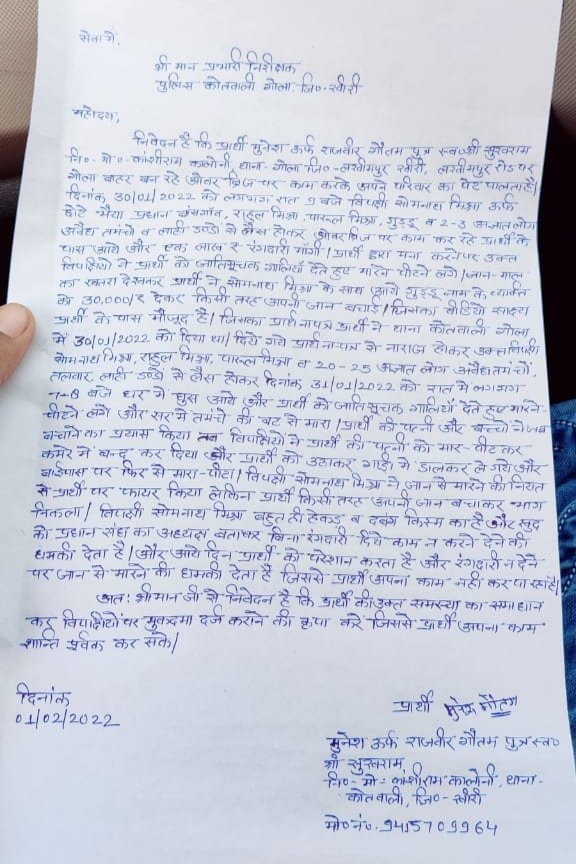 सेवा में,
श्री मान प्रभारी निरीक्षक
पुलिस कोतवाली गोला जि०-खीरी
महोदय,
निवेदन है कि प्रार्थी मुनेश उर्फ राजवीर गौतम पुत्र स्व०श्री सुखराम
नि०- मो०- कांशीराम कालोनी, थाना- गोला जि०- लखीमपुर खीरी, लखीमपुर रोड पर
गोला बाहर बन रहे ओवर ब्रिज पर काम करके अपने परिवार का पेट पालता है।
दिनांक 30/01/2022 को लगभग रात 9 बजे विपक्षी सोमनाथ मिश्रा उर्फ
छोटे भैया प्रधान, राहुल मिश्रा, पारूल मिश्रा, गुड्डू व 2-3 अज्ञात लोग
अवैध तमंचो व लाठी डण्डो से लैस होकर ओवर ब्रिज पर काम कर रहे प्रार्थी के
पास आये और एक लाख रु रंगदारी मांगी। प्रार्थी द्वारा मना करने पर उक्त
विपक्षीयो ने प्रार्थी को जातिसूचक गालियाँ देते हुए मारने पीटने लगे। जान-माल
का खतरा देखकर प्रार्थी ने सोमनाथ मिश्रा के साथ आये गुड्डू नाम के व्यक्ति
को 30,000/रु देकर किसी तरह अपनी जान बचाई। जिसका वीडियो साक्ष्य
प्रार्थी के पास मौजूद है। जिसका प्रार्थनापत्र प्रार्थी ने थाना कोतवाली गोला
में 30/01/2022 को दिया था। दिये गये प्रार्थनापत्र से नाराज होकर उक्त विपक्षी
सोमनाथ मिश्रा, राहुल मिश्रा, पारूल मिश्रा व 20-25 अज्ञात लोग अवैध तमंचो,
तलवार, लाठी डण्डो से लैस होकर दिनांक 31/01/2022 को रात में लगभग
7-8 बजे घर में घुस आये और प्रार्थी को जातिसूचक गालियाँ देते हुए मारने-
पीटने लगे और सर में तमंचे की बट से मारा। प्रार्थी की पत्नी और बच्चो ने जब
बचाने का प्रयास किया तब विपक्षीयो ने प्रार्थी की पत्नी को मार-पीट कर
कमरे में बन्द कर दिया और प्रार्थी को उठाकर गाडी में डालकर ले गये और
बाईपास पर फिर से मारा-पीटा। विपक्षी सोमनाथ मिश्रा ने जान से मारने की नियत
से प्रार्थी पर फायर किया लेकिन प्रार्थी किसी तरह अपनी जान बचाकर भाग
निकला। विपक्षी सोमनाथ मिश्रा बहुत ही हेकड व दबंग किस्म का है और खुद
को प्रधान संघ का अध्यक्ष बताकर बिना रंगदारी दिये काम न करने देने की
धमकी देता है। और आये दिन प्रार्थी को परेशान करता है और रंगदारी न देने
पर जान से मारने की धमकी देता है जिससे प्रार्थी अपना काम नहीं कर पा रहा है।
अतः श्रीमान जी से निवेदन है कि प्रार्थी की उक्त समस्या का समाधान
कर विपक्षीयो पर मुकदमा दर्ज कराने की कृपा करे जिससे प्रार्थी अपना काम
शान्ति पूर्वक कर सके।
दिनांक
01/02/2022
प्रार्थी मुनेश गौतम
मुनेश उर्फ राजवीर गौतम पुत्र स्व०
श्री सुखराम,
नि०- मो०- कांशीराम कालोनी, थाना-
कोतवाली, जि०- खीरी
मो०नं०. 9415709964